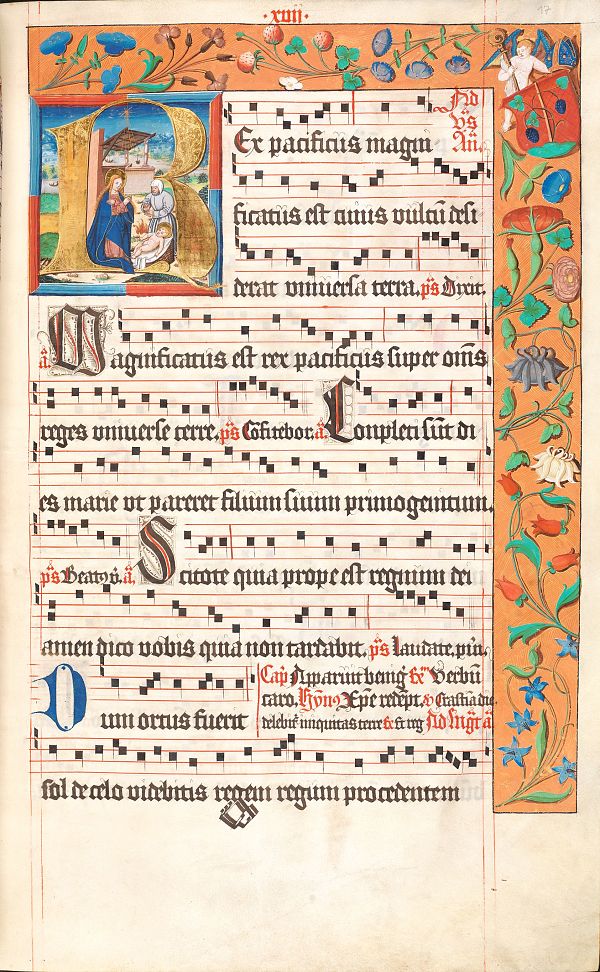 ·xvij·
17
Ad
Vs̄
An̄.
Rex pacificus magni
ficatus est cuius vultū desi
derat vniuersa terra. p̄s Dixit.
ā Magnificatus est rex pacificus super om̄s
reges vniuerse terre. p̄s Cōfitebor. ā Conpleti sūt di
es marie vt pareret filium suum primogenitum.
p̄s Beatꝰ v̄. ā Scitote quia prope est regnum dei
amen dico vobis quia non tardabit. p̄s Laudate. pūi.
Cap̄ Apparuit beniḡ Verbū
caro. Hȳnꝰ Xp̄e redēpt. Crastina die
Dum ortus fuerit delebit᷑ iniquitas terre Ad Maḡt ā
sol de celo videbitis regem regum procedentem